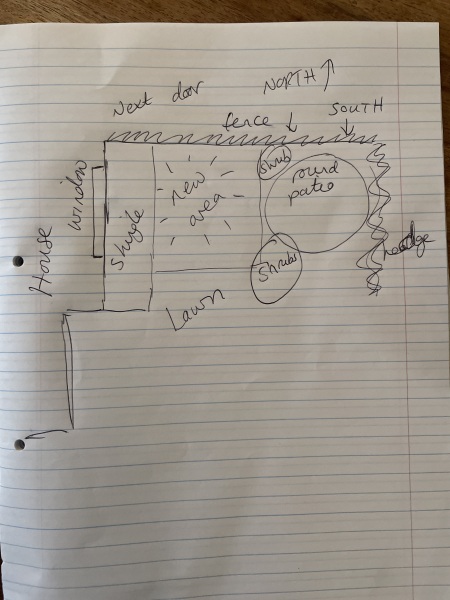 Next door
NORTH
SOUTH
fence
shrub
round
patio
new
area
window
Shingle
House
Shrubs
Lawn